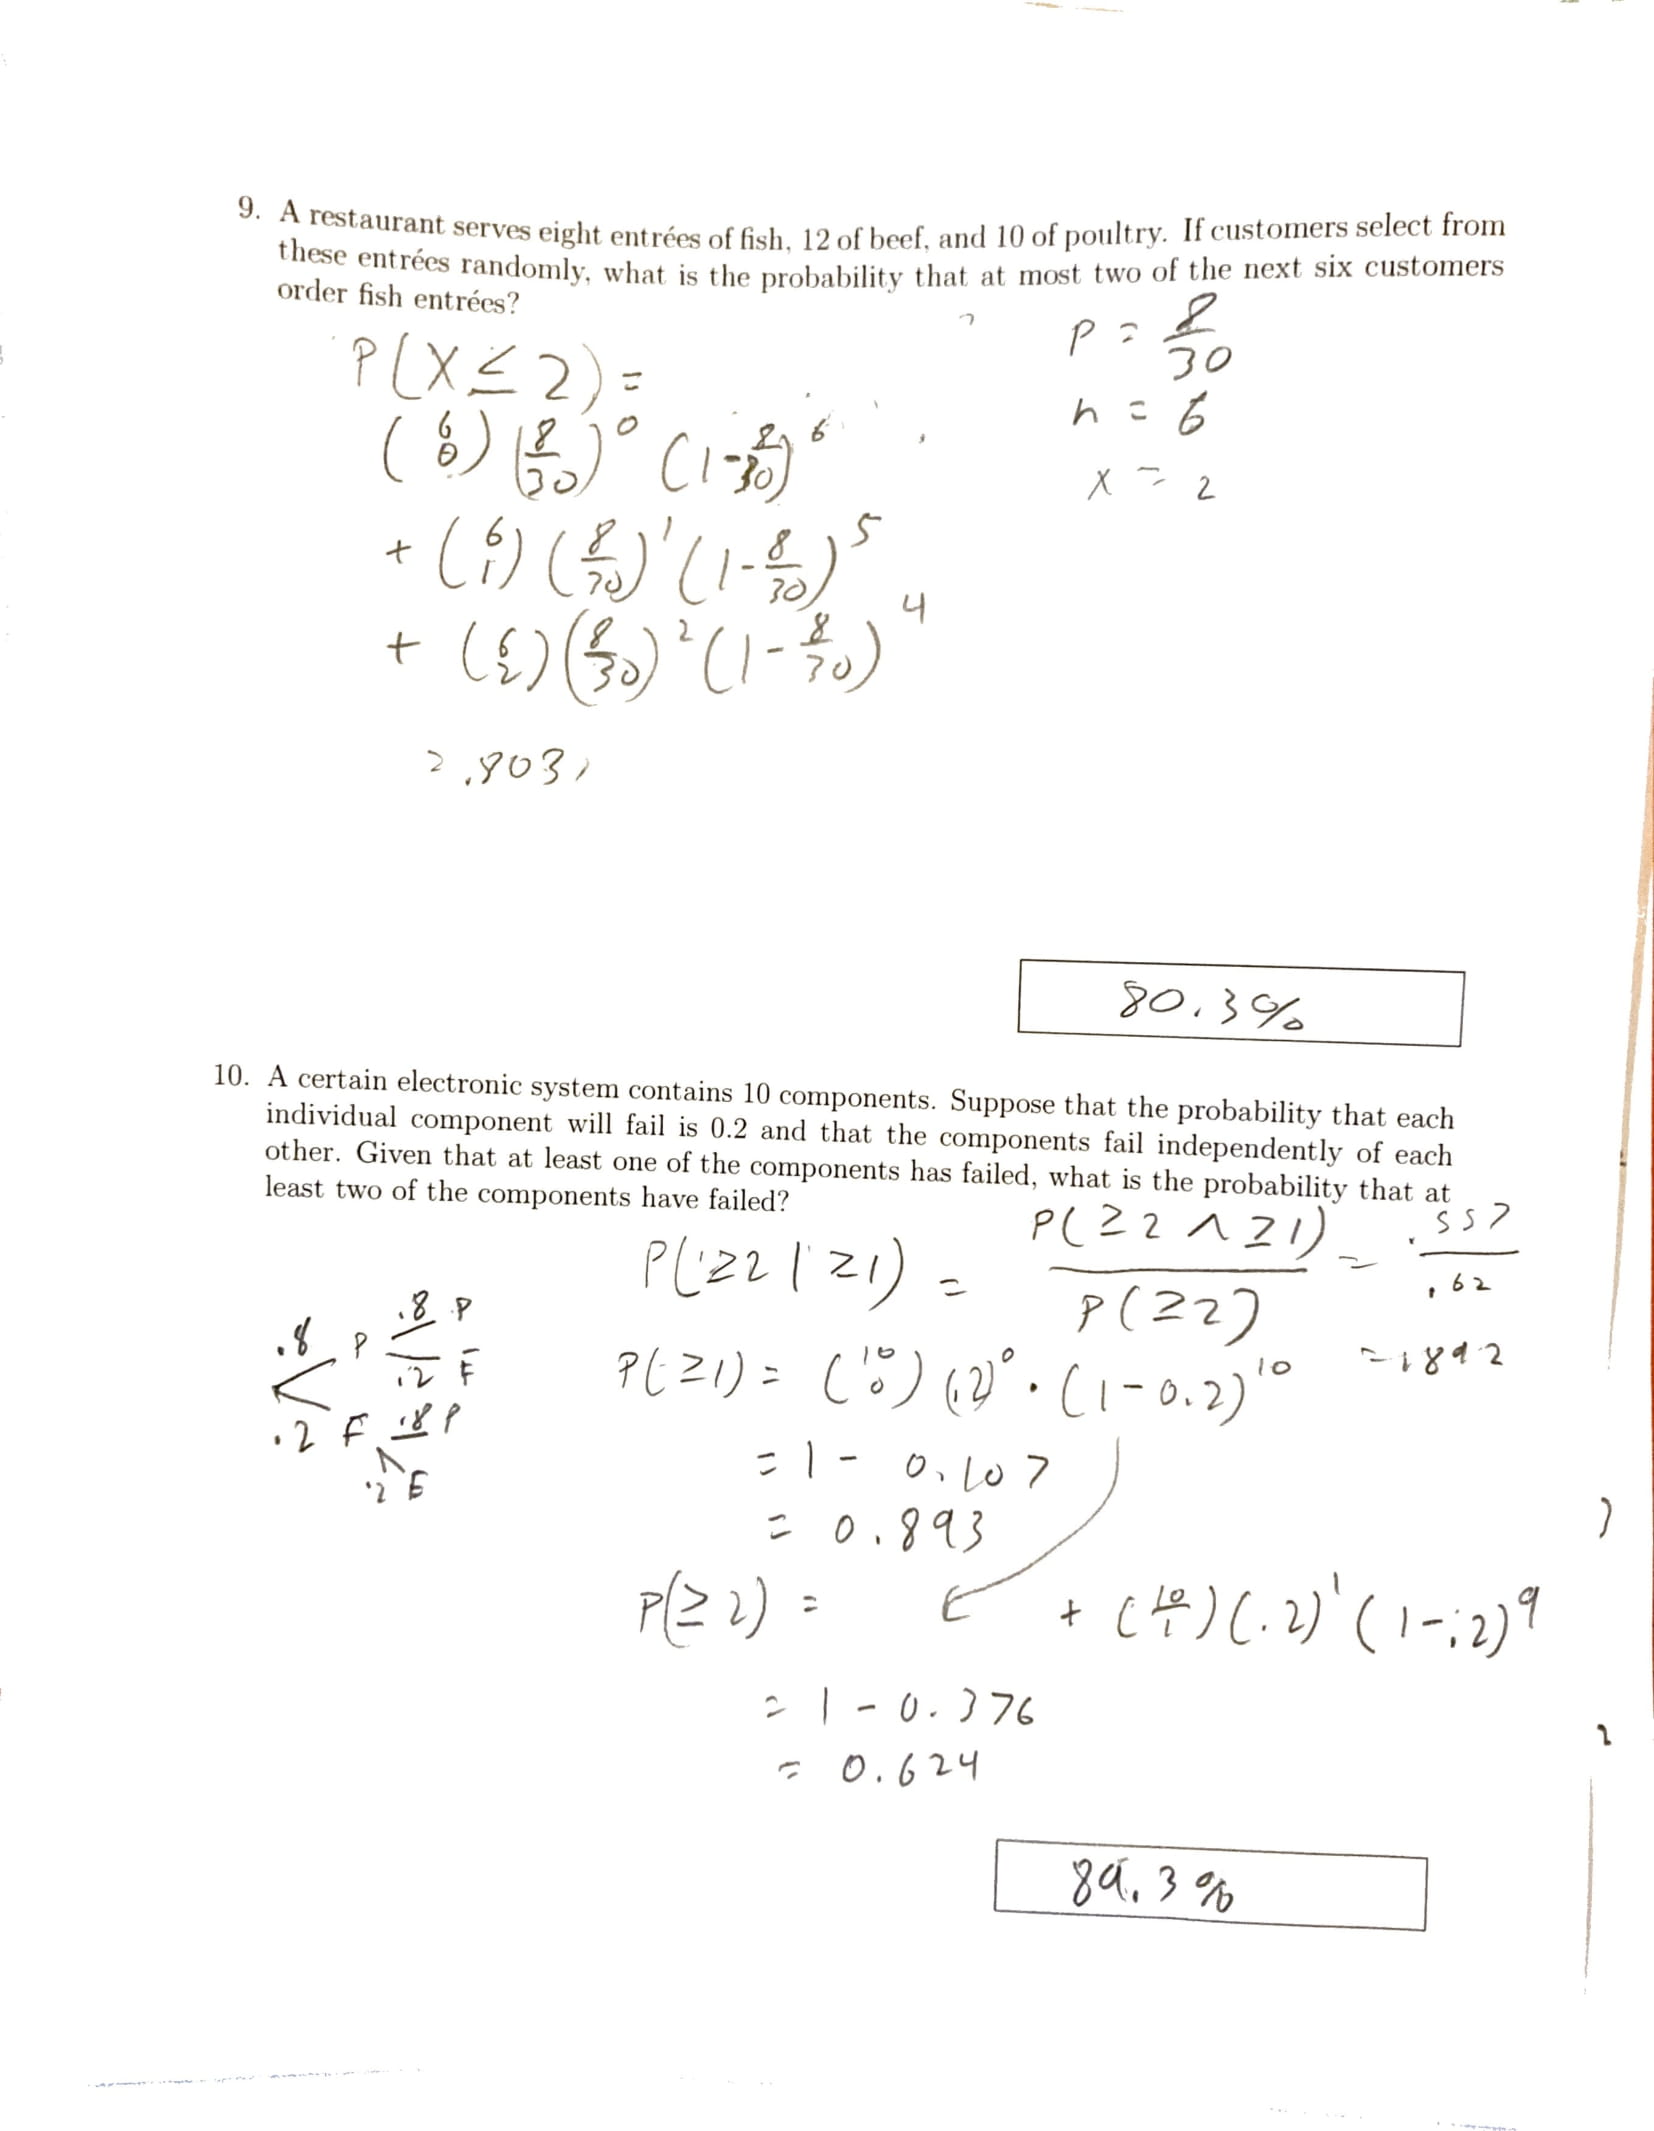 9. A restaurant serves eight entrées of fish, 12 of beef, and 10 of poultry. If customers select from
these entrées randomly, what is the probability that at most two of the next six customers
order fish entrées?
p = 8/30
P(X ≤ 2) =
n = 6
(6 0) (8/30)^0 (1-8/30)^6
x = 2
+ (6 1) (8/30)^1 (1-8/30)^5
+ (6 2) (8/30)^2 (1-8/30)^4
= .803
80.3%
10. A certain electronic system contains 10 components. Suppose that the probability that each
individual component will fail is 0.2 and that the components fail independently of each
other. Given that at least one of the components has failed, what is the probability that at
least two of the components have failed?
P(≥2 | ≥1) = P(≥2 ∧ ≥1) / P(≥2) = .557 / .62
= .892
.8 P .8 P
.2 F
.2 F .8 P
.2 F
P(≥1) = (10 0) (.2)^0 · (1-0.2)^10
= 1 - 0.107
= 0.893
P(≥2) = + (10 1) (.2)^1 (1-.2)^9
= 1 - 0.376
= 0.624
89.3%